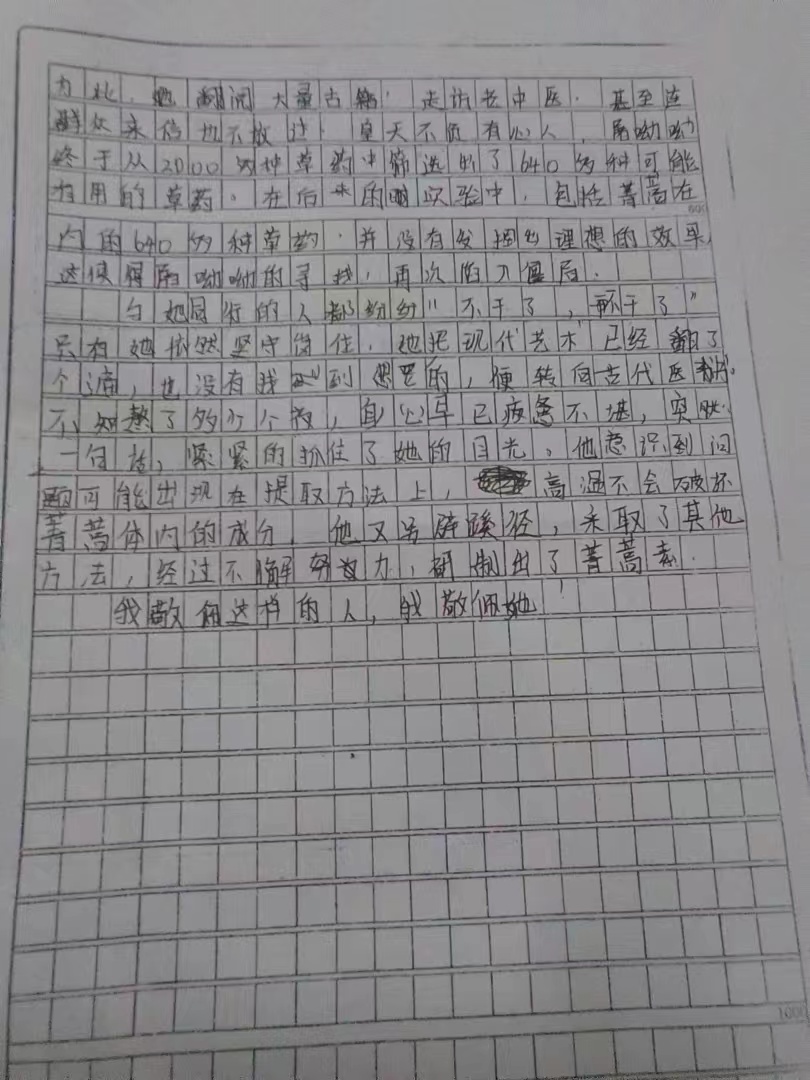 为此,她翻阅大量古籍,走访老中医,甚至连
群众来信也不放过。皇天不负有心人,屠呦呦
终于从2000多种草药中筛选出了640多种可能
有用的草药。在后来的实验中,包括菁蒿在
600
内的640多种草药,并没有发掘出理想的效果
这使得屠呦呦的寻找,再次陷入僵局.
与她同行的人都纷纷"不干了,不干了"
只有她依然坚守岗位.她把现代艺术已经翻了
个遍,也没有找到想要的,便转向古代医书.
不知熬了多少个夜,身心早已疲惫不堪,突然
一句话,紧紧的抓住了她的目光,他意识到问
题可能出现在提取方法上,高温不会破坏
菁蒿体内的成分.他又另辟蹊径,采取了其他
方法,经过不懈努力,研制出了菁蒿素.
我敬佩这样的人,我敬佩她!
1000